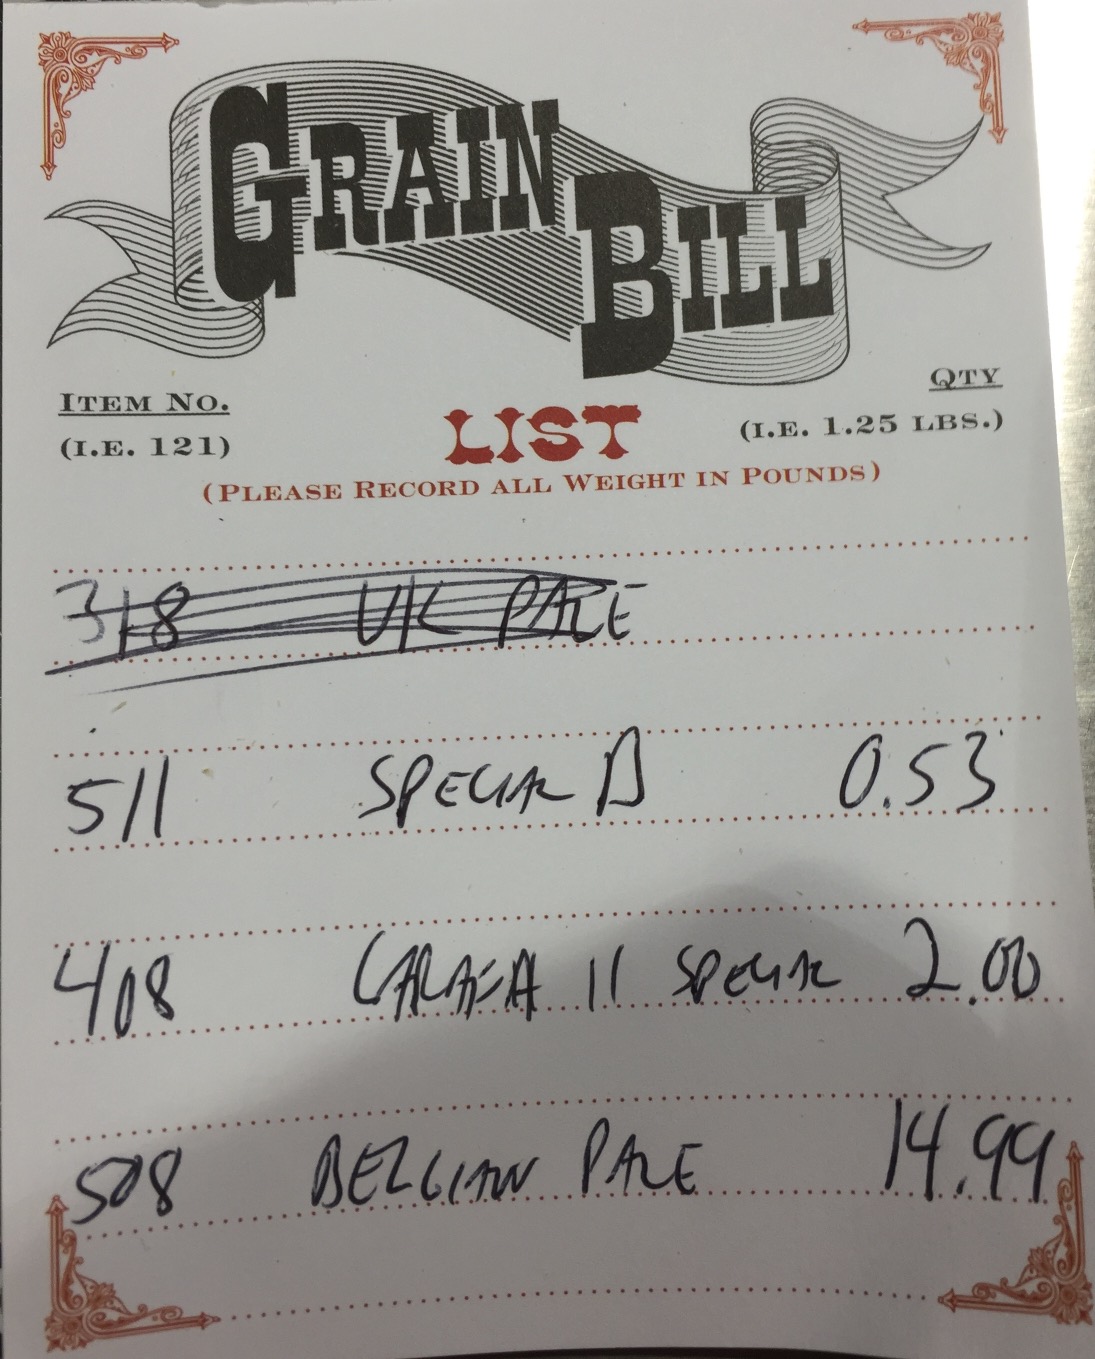 GRAIN BILL
ITEM NO. QTY
(I.E. 121) LIST (I.E. 1.25 LBS.)
(PLEASE RECORD ALL WEIGHT IN POUNDS)
318 UK PALE
511 SPECIAL B 0.53
408 CARAFA II SPECIAL 2.00
508 BELGIAN PALE 14.99